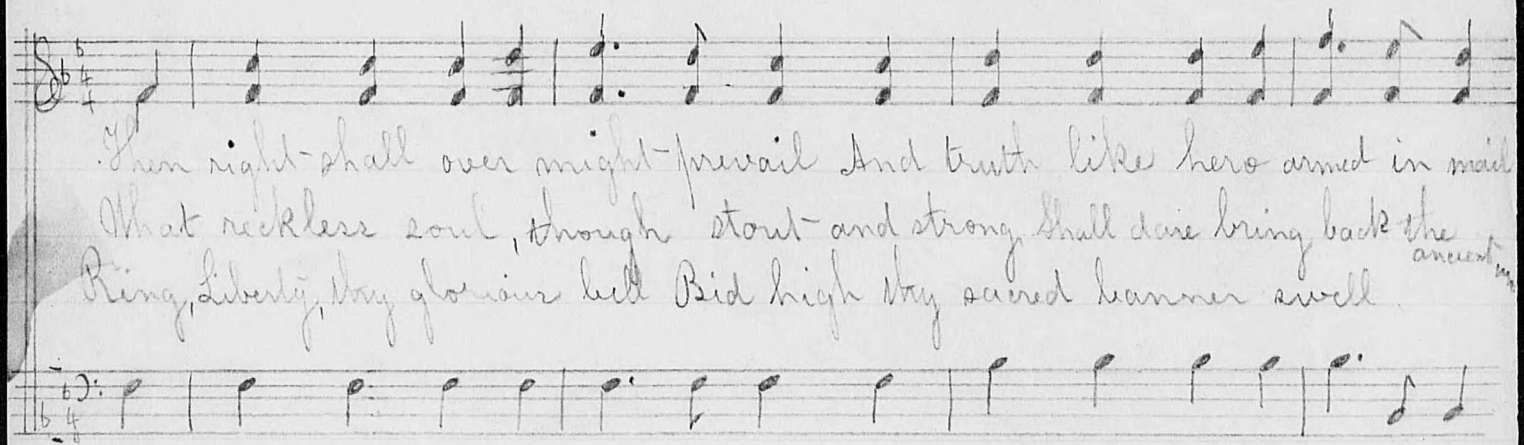 Then right shall over might prevail And truth like hero armed in mail
What reckless soul, though stout and strong Shall dare bring back the
ancient
Ring, Liberty, thy glorious bell Bid high thy sacred banner swell.